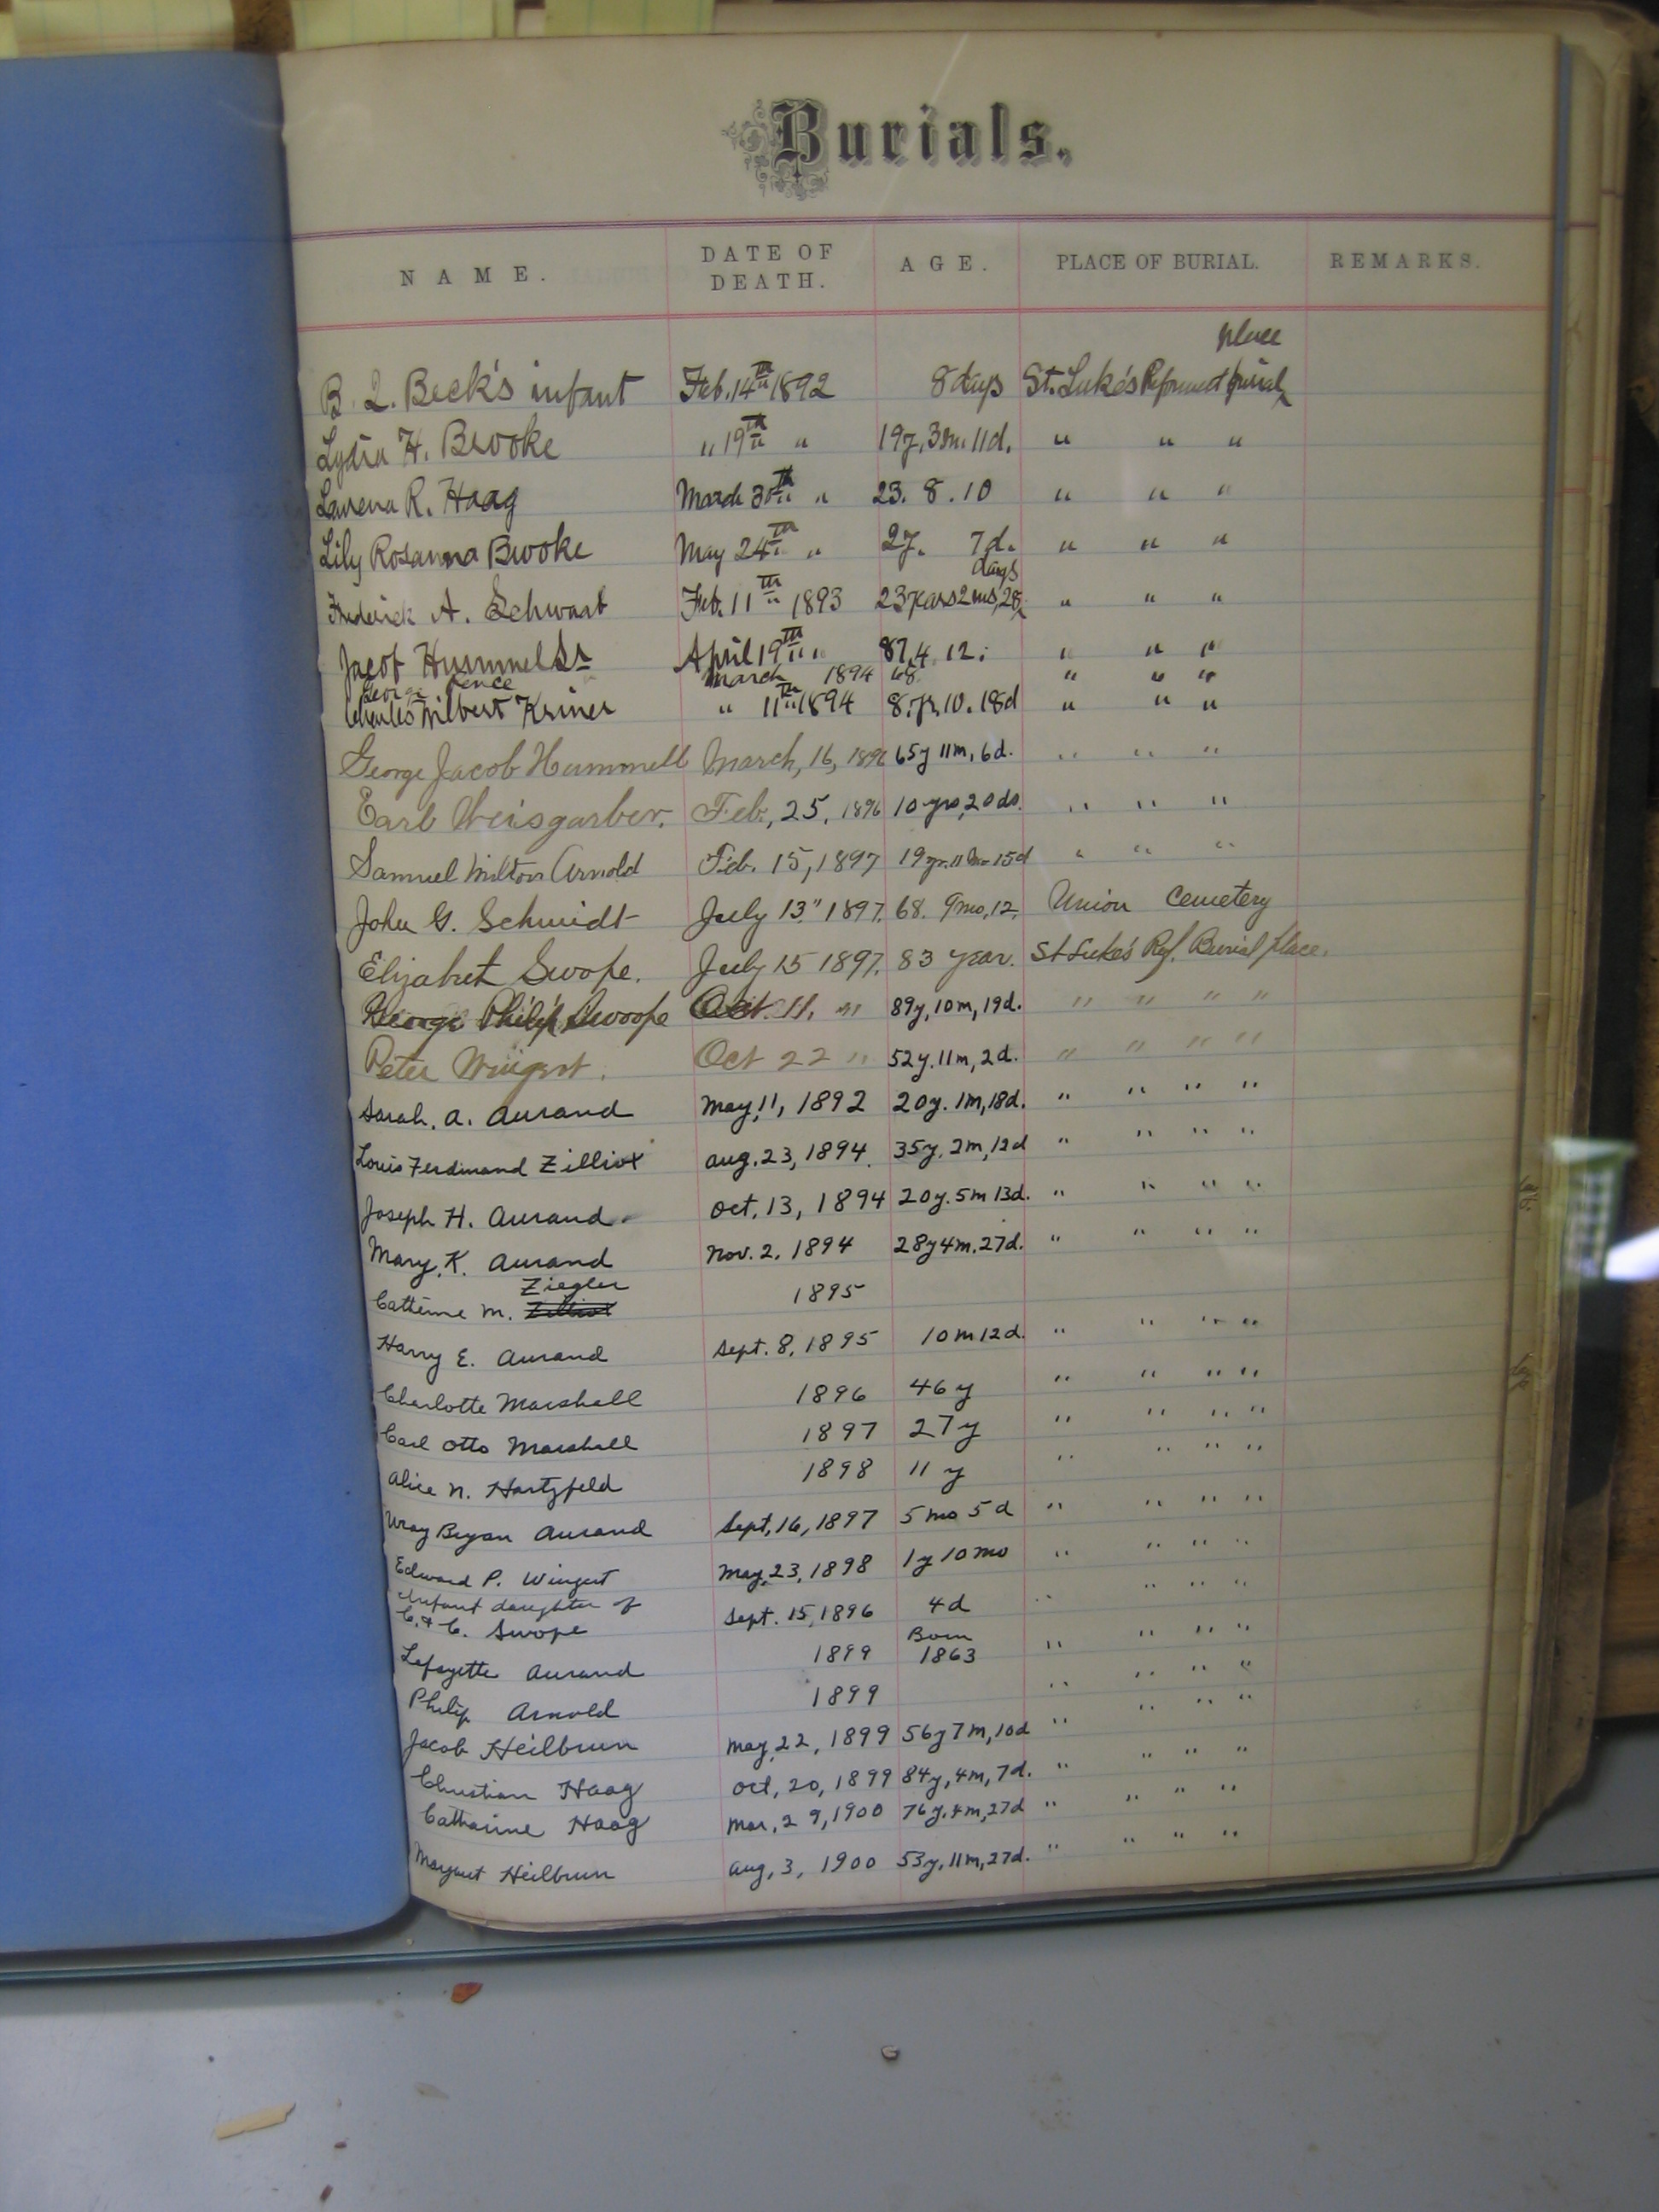 Burials.
NAME. DATE OF DEATH. AGE. PLACE OF BURIAL. REMARKS.
place
B. L. Beck's infant Feb. 14th 1892 8 days St. Luke's Reformed burial
Lydia H. Brooke " 19th " 19y, 3m. 11d. " " "
Lavena R. Haag March 30th " 23. 8. 10 " " "
Lily Rosanna Brooke May 24th " 2y. 7d. " " "
days
Frederick A. Schwaab Feb. 11th 1893 23 years 2 ms, 28 " " "
Jacob Hummel Sr April 19th " 87, 4. 12. " " "
George Pence March 1894 68 " " "
Charles Wilbert Kriner " 11th 1894 8. yr, 10. 18d " " "
George Jacob Hummell March, 16, 1896 65y 11m, 6d. " " "
Earl Weisgarber. Feb., 25, 1896 10 yrs, 20 ds. " " "
Samuel Milton Arnold Feb. 15, 1897 19 yr. 11 mo 15d " " "
John G. Schmidt July 13" 1897. 68. 9mo, 12. Union Cemetery
Elizabeth Swope. July 15 1897. 83 year. St Luke's Ref. Burial place.
George Philip Swoope Oct. 11, " 89y, 10m, 19d. " " " "
Peter Wingert. Oct 22 " 52y. 11m, 2d. " " " "
Sarah. A. Aurand May, 11, 1892 20y. 1m, 18d. " " " "
Louis Ferdinand Zilliox Aug. 23, 1894. 35y. 2m, 12d " " " "
Joseph H. Aurand. Oct, 13, 1894 20y. 5m 13d. " " " "
Mary. K. Aurand Nov. 2, 1894 28y 4m. 27d. " " " "
Ziegler
Catherine M. Zilliox 1895
Harry E. Aurand Sept. 8, 1895 10m 12d. " " " "
Charlotte Marshall 1896 46 y " " " "
Carl Otto Marshall 1897 27 y " " " "
Alice N. Hartzfeld 1898 11 y " " " "
Wray Bryan Aurand Sept, 16, 1897 5 mo 5 d " " " "
Edward P. Wingert May, 23, 1898 1 y 10 mo " " " "
Infant daughter of
C. & C. Swope Sept. 15, 1896 4d " " " "
Born
Lafayette Aurand 1899 1863 " " " "
Philip Arnold 1899 " " " "
Jacob Heilbrun May, 22, 1899 56y 7m, 10d " " " "
Christian Haag Oct, 20, 1899 84y, 4m, 7d. " " " "
Catharine Haag Mar, 29, 1900 76y. 4m, 27d " " " "
Margaret Heilbrun Aug, 3, 1900 53y, 11m, 27d. " " " "